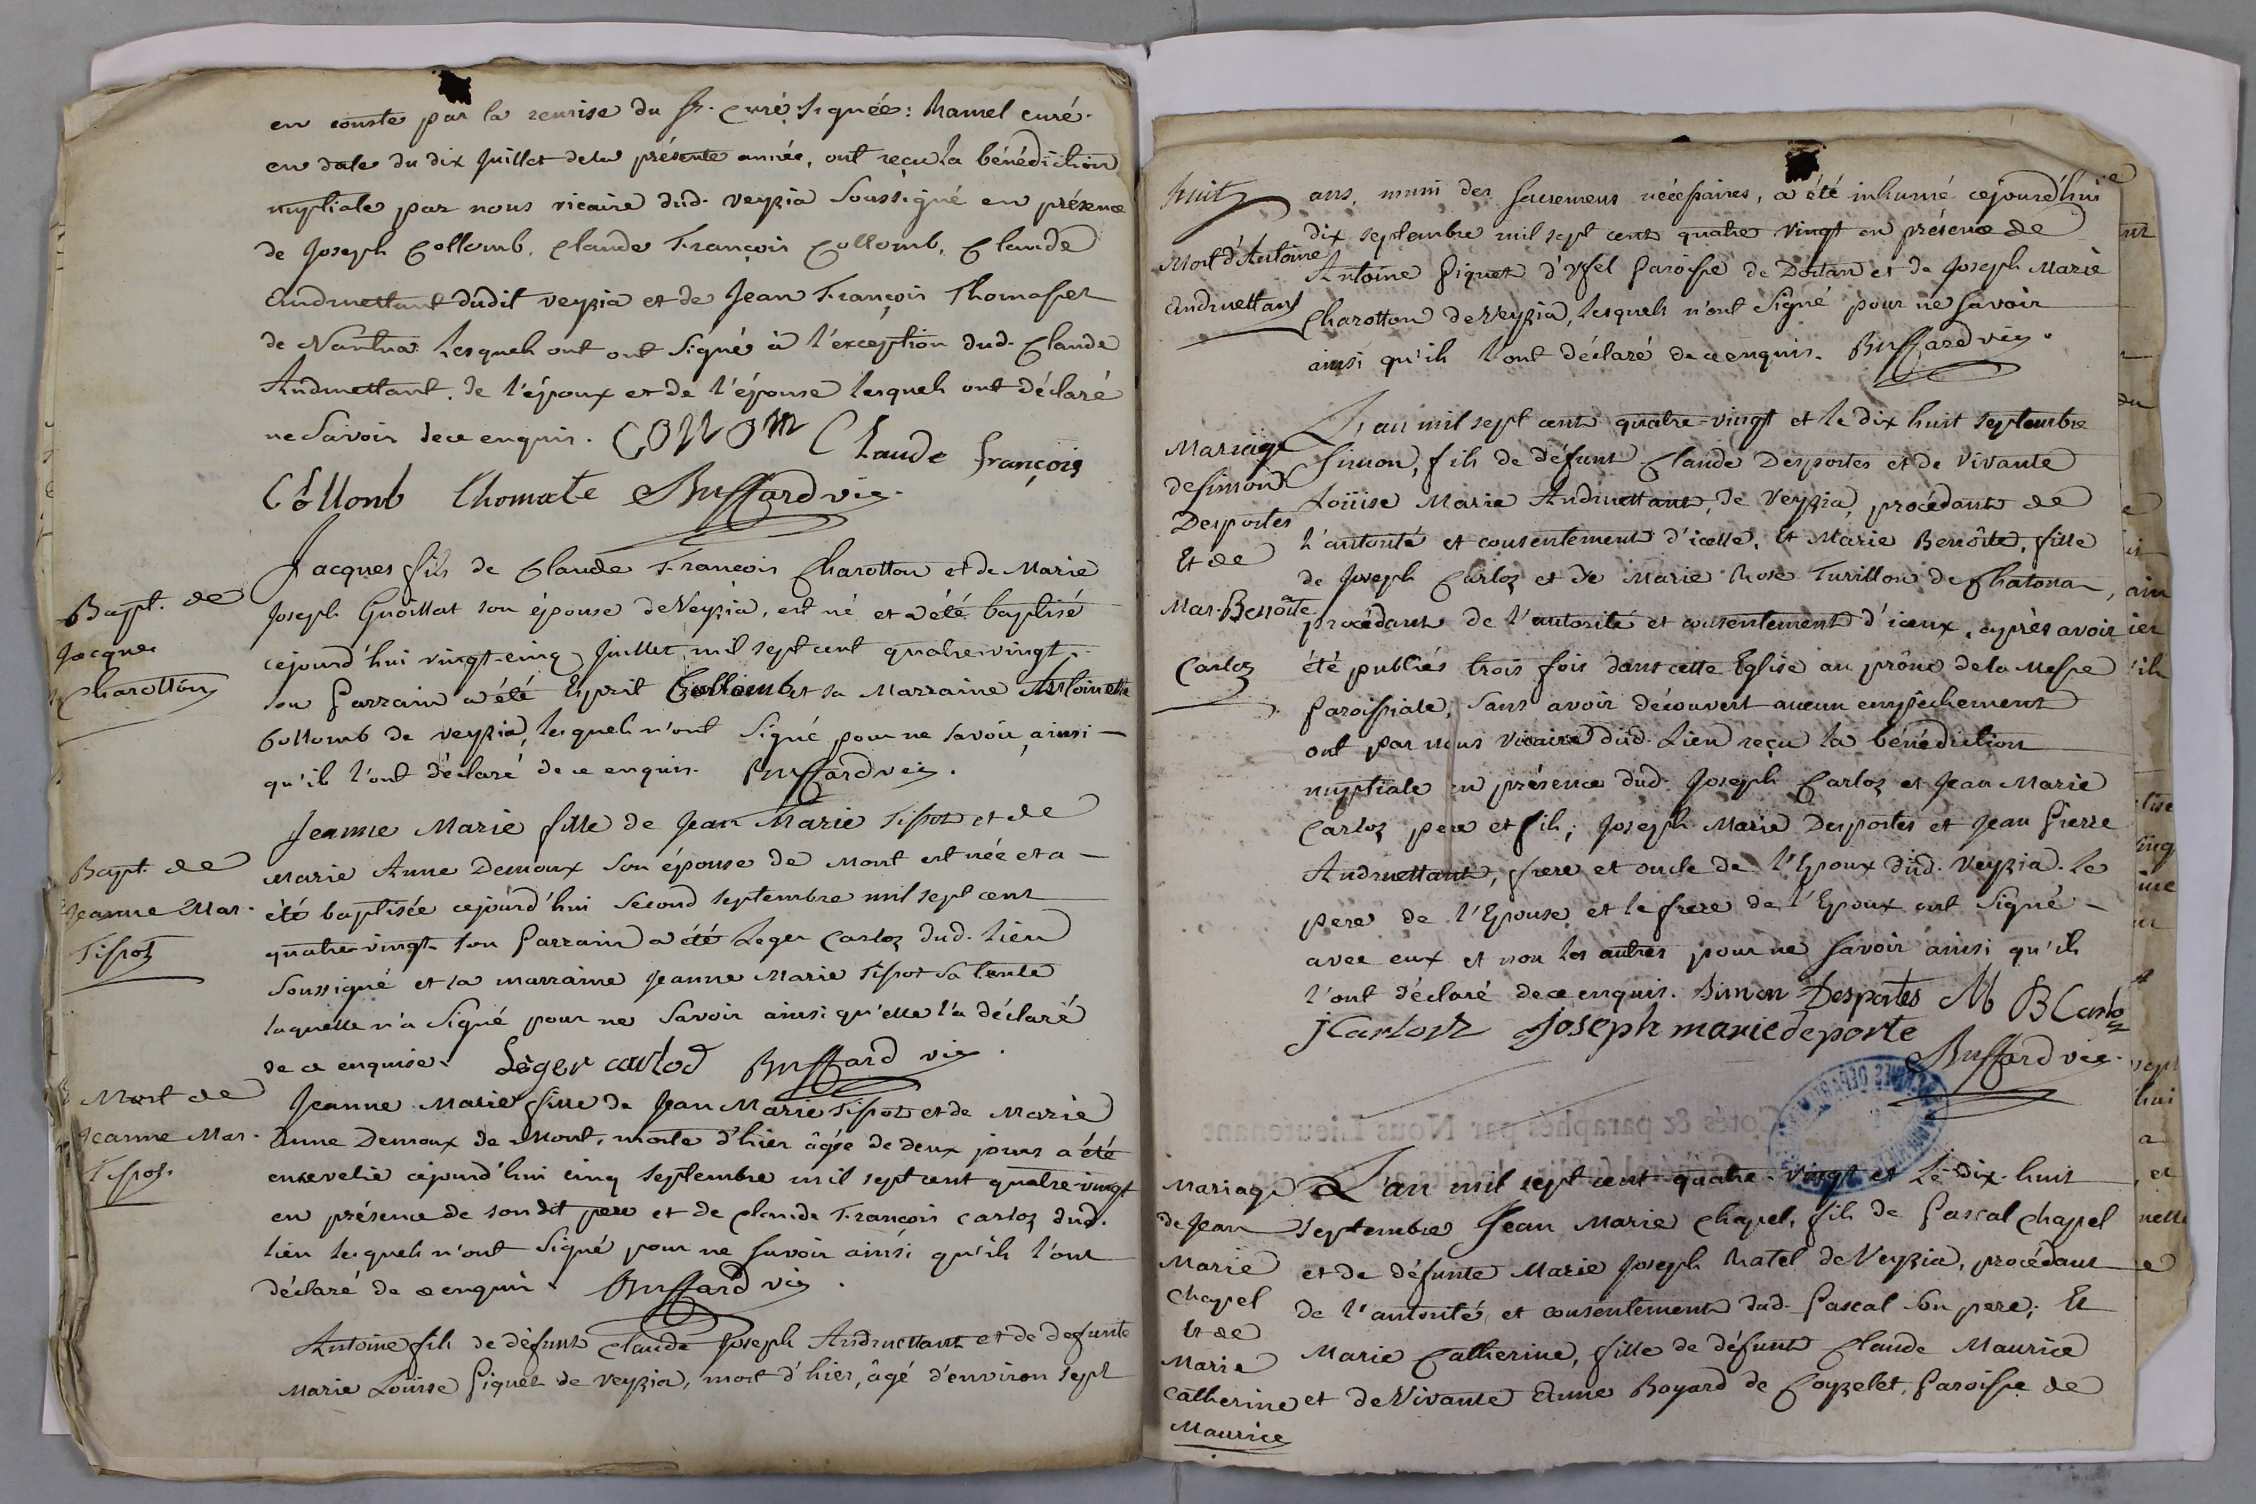 en conste par la remise du Sr. Curé signée: hamel curé.
en date du dix Juillet de la présente année, ont reçu la bénédiction
nuptiale par nous vicaire dud. veyzia soussigné en présence
de Joseph Collomb, Claude François Collomb, Claude
Andruettant dudit veyzia et de Jean François Thomasset
de Nantua lesquels ont ont signé à l'exception dud. Claude
Andruettant, de l'époux et de l'épouse lesquels ont déclaré
ne savoir de ce enquis. Collom Claude françois
Collonb thomate Buffard vic.
Bapt. de
Jacques
Charotton
Jacques fils de Claude François Charotton et de Marie
Joseph Guoillat son épouse de Veyzia, est né et a été baptisé
cejourd'hui vingt-cinq Juillet mil sept cent quatre vingt.
son Parrain a été Esprit Collomb et sa Marraine Antoinette
Collomb de veyzia, lesquels n'ont signé pour ne savoir, ainsi
qu'ils l'ont déclaré de ce enquis. Buffard vic.
Bapt. de
Jeanne Mar.
Tissot
Jeanne Marie fille de Jean Marie Tissot et de
Marie Anne Demoux son épouse de Mont est née et a
été baptisée cejourd'hui second septembre mil sept cent
quatre vingt. son Parrain a été Leger Carloz dud. lieu
soussigné et la marraine Jeanne Marie Tissot sa tante
laquelle n'a signé pour ne savoir ainsi qu'elle l'a déclaré
de ce enquise. Léger carlod Buffard vic.
Mort de
Jeanne Mar.
Tissot.
Jeanne Marie fille de Jean Marie Tissot et de Marie
Anne Demoux de Mont, morte d'hier âgée de deux jours a été
ensevelie cejourd'hui cinq septembre mil sept cent quatre vingt
en présence de son dit pere et de Claude François Carloz dud.
lieu lesquels n'ont signé pour ne savoir ainsi qu'ils l'ont
déclaré de ce enquis. Buffard vic.
Antoine fils de défunt Claude Joseph Andruettant et de defunte
Marie Louise Piquet de veyzia, mort d'hier, âgé d'environ sept
huit
Mort d'Antoine
Andruettant
ans, muni des sacremens nécessaires, a été inhumé cejourd'hui
dix septembre mil sept cent quatre vingt en présence de
Antoine Piquet d'Uffel Paroisse de Dortan et de Joseph Marie
Charotton de Veyzia, lesquels n'ont signé pour ne savoir
ainsi qu'ils l'ont déclaré de ce enquis. Buffard vic.
Mariage
de Simon
Desportes
Et de
Mar. Benoîte
Carloz
L'an mil sept cent quatre-vingt et le dix huit septembre
Simon, fils de défunt Claude Desportes et de vivante
Loüise Marie Andruettant, de Veyzia, procédant de
l'autorité et consentement d'icelle, Et Marie Benoîte, fille
de Joseph Carloz et de Marie Rose Turillon de Chatonna,
procédant de l'autorité et consentement d'iceux, après avoir
été publiés trois fois dans cette Eglise au prône de la Messe
Paroissiale, sans avoir découvert aucun empêchement
ont par nous vicaire dud. lieu reçu la bénédiction
nuptiale en présence dud. Joseph Carloz et Jean Marie
Carloz pere et fils; Joseph Marie Desportes et Jean Pierre
Andruettant, frere et oncle de l'Epoux dud. veyzia. Le
pere de l'Epouse et le frere de l'Epoux ont signé
avec eux et non les autres pour ne savoir ainsi qu'ils
l'ont déclaré de ce enquis. Simon Desportes M B Carloz
JCarloz Joseph marie deporte
Buffard vic.
Cotés & paraphés par Nous Lieutenant
Mariage
de Jean
Marie
Chapel
Et de
Marie
Catherine
Maurice
L'an mil sept cent quatre-vingt et Le dix-huit
septembre Jean Marie Chapel, fils de Pascal Chapel
et de défunte Marie Joseph hatel de Veyzia, procédant
de l'autorité et consentement dud. Pascal son pere; Et
Marie Catherine, fille de défunt Claude Maurice
et de Vivante Anne Boyard de Coyzelet, Paroisse de